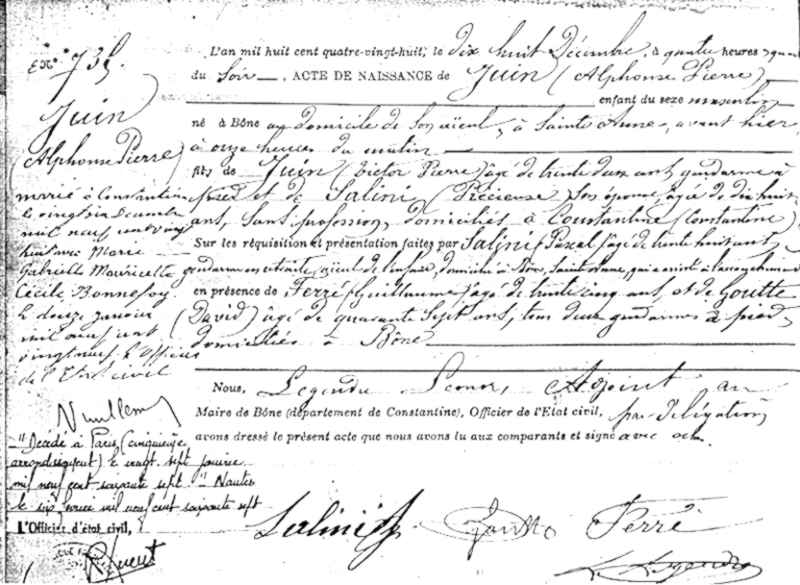 N° 735
Juin
(Alphonse Pierre)
marié à Constantine
le vingt six décembre
mil neuf cent vingt
huit avec Marie
Gabrielle Mauricette
Cécile Bonnefoy
le douze janvier
mil neuf cent
vingt neuf. L'Officier
de l'Etat civil
"Décédé à Paris (cinquième
arrondissement) le vingt sept janvier
mil neuf cent soixante sept." Nantes
le six février mil neuf cent soixante sept
L'Officier d'état civil,
L'an mil huit cent quatre-vingt-huit, le dix huit Décembre, à quatre heures
du soir, ACTE DE NAISSANCE de Juin (Alphonse Pierre)
enfant du sexe masculin
né à Bône au domicile de son aïeul, à Sainte Anne, avant hier
à onze heures du matin
fils de Juin (Victor Pierre) âgé de trente deux ans, gendarme à
pied et de Salini (Précieuse) son épouse, âgée de dix huit
ans, sans profession, domiciliés à Constantine (Constantine)
Sur les réquisition et présentation faites par Salini Pascal, âgé de trente huit ans,
gendarme en retraite, aïeul de l'enfant, domicilié à Bône, Sainte Anne, qui a assisté à l'accouchement
en présence de Ferré (Guillaume) âgé de trente cinq ans, et de Goutte
(David) âgé de quarante sept ans, tous deux gendarmes à pied,
domiciliés à Bône
Nous, Adjoint au
Maire de Bône (département de Constantine), Officier de l'Etat civil, par délégation
avons dressé le présent acte que nous avons lu aux comparants et signé avec eux
Salini Ferré